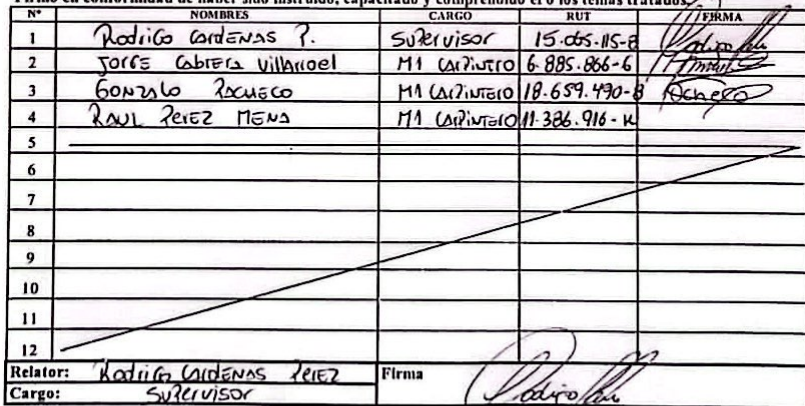 Firmo en conformidad de haber sido instruido, capacitado y comprendido el o los temas tratados.
N° NOMBRES CARGO RUT FIRMA
1 Rodrigo Cardenas P. Supervisor 15.065.115-8
2 Jorge Cabrera Villarroel M1 Carpintero 6.885.866-6
3 Gonzalo Pacheco M1 Carpintero 18.659.490-8 Pacheco
4 Raul Perez Mena M1 Carpintero 11.386.916-K
5
6
7
8
9
10
11
12
Relator: Rodrigo Cardenas Perez Firma
Cargo: Supervisor